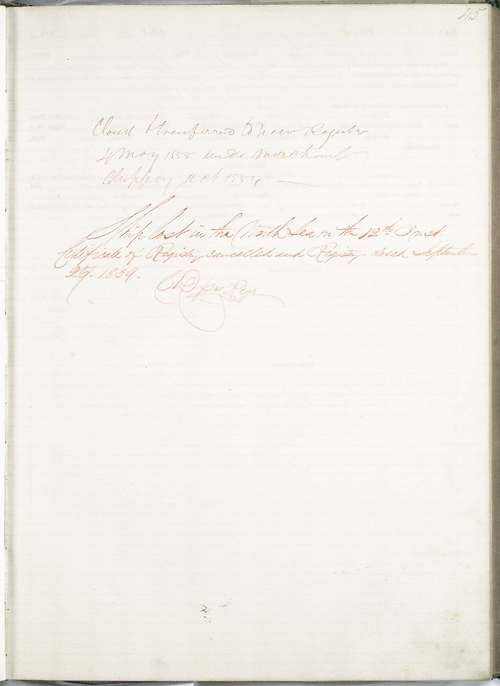 45
Closed & transferred to new Register
4 May 1855 under Merchant
Shipping Act 1854
Ship lost in the North Sea on the 12th Inst
Certificate of Registry cancelled and Registry closed September
1859.